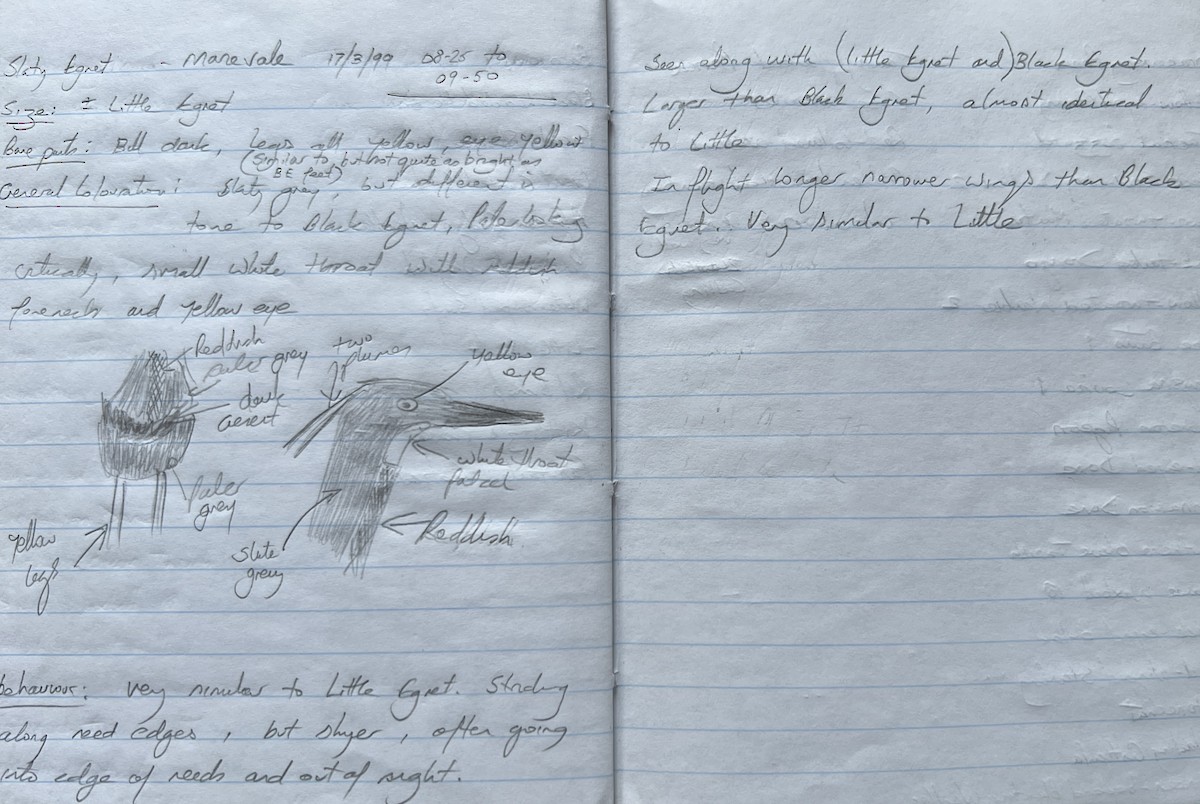 Slaty Egret - Marievale 17/3/99 08-25 to
09-50
Size: ± Little Egret
Bare parts: Bill dark, legs all yellow, eye yellow
(Similar to, but not quite as bright as
BE feet)
General Colouration: Slaty grey, but different in
tone to Black Egret, Paler looking
critically, small white throat with reddish
foreneck and yellow eye
Reddish
paler grey
dark
crescent
paler
grey
yellow
legs
two
plumes
yellow
eye
white throat
patch
slate
grey
Reddish
behaviour: very similar to Little Egret. Striding
along reed edges, but shyer, often going
into edge of reeds and out of sight.
Seen along with (little Egret and) Black Egret.
Larger than Black Egret, almost identical
to Little
In flight longer narrower wings than Black
Egret. Very similar to Little